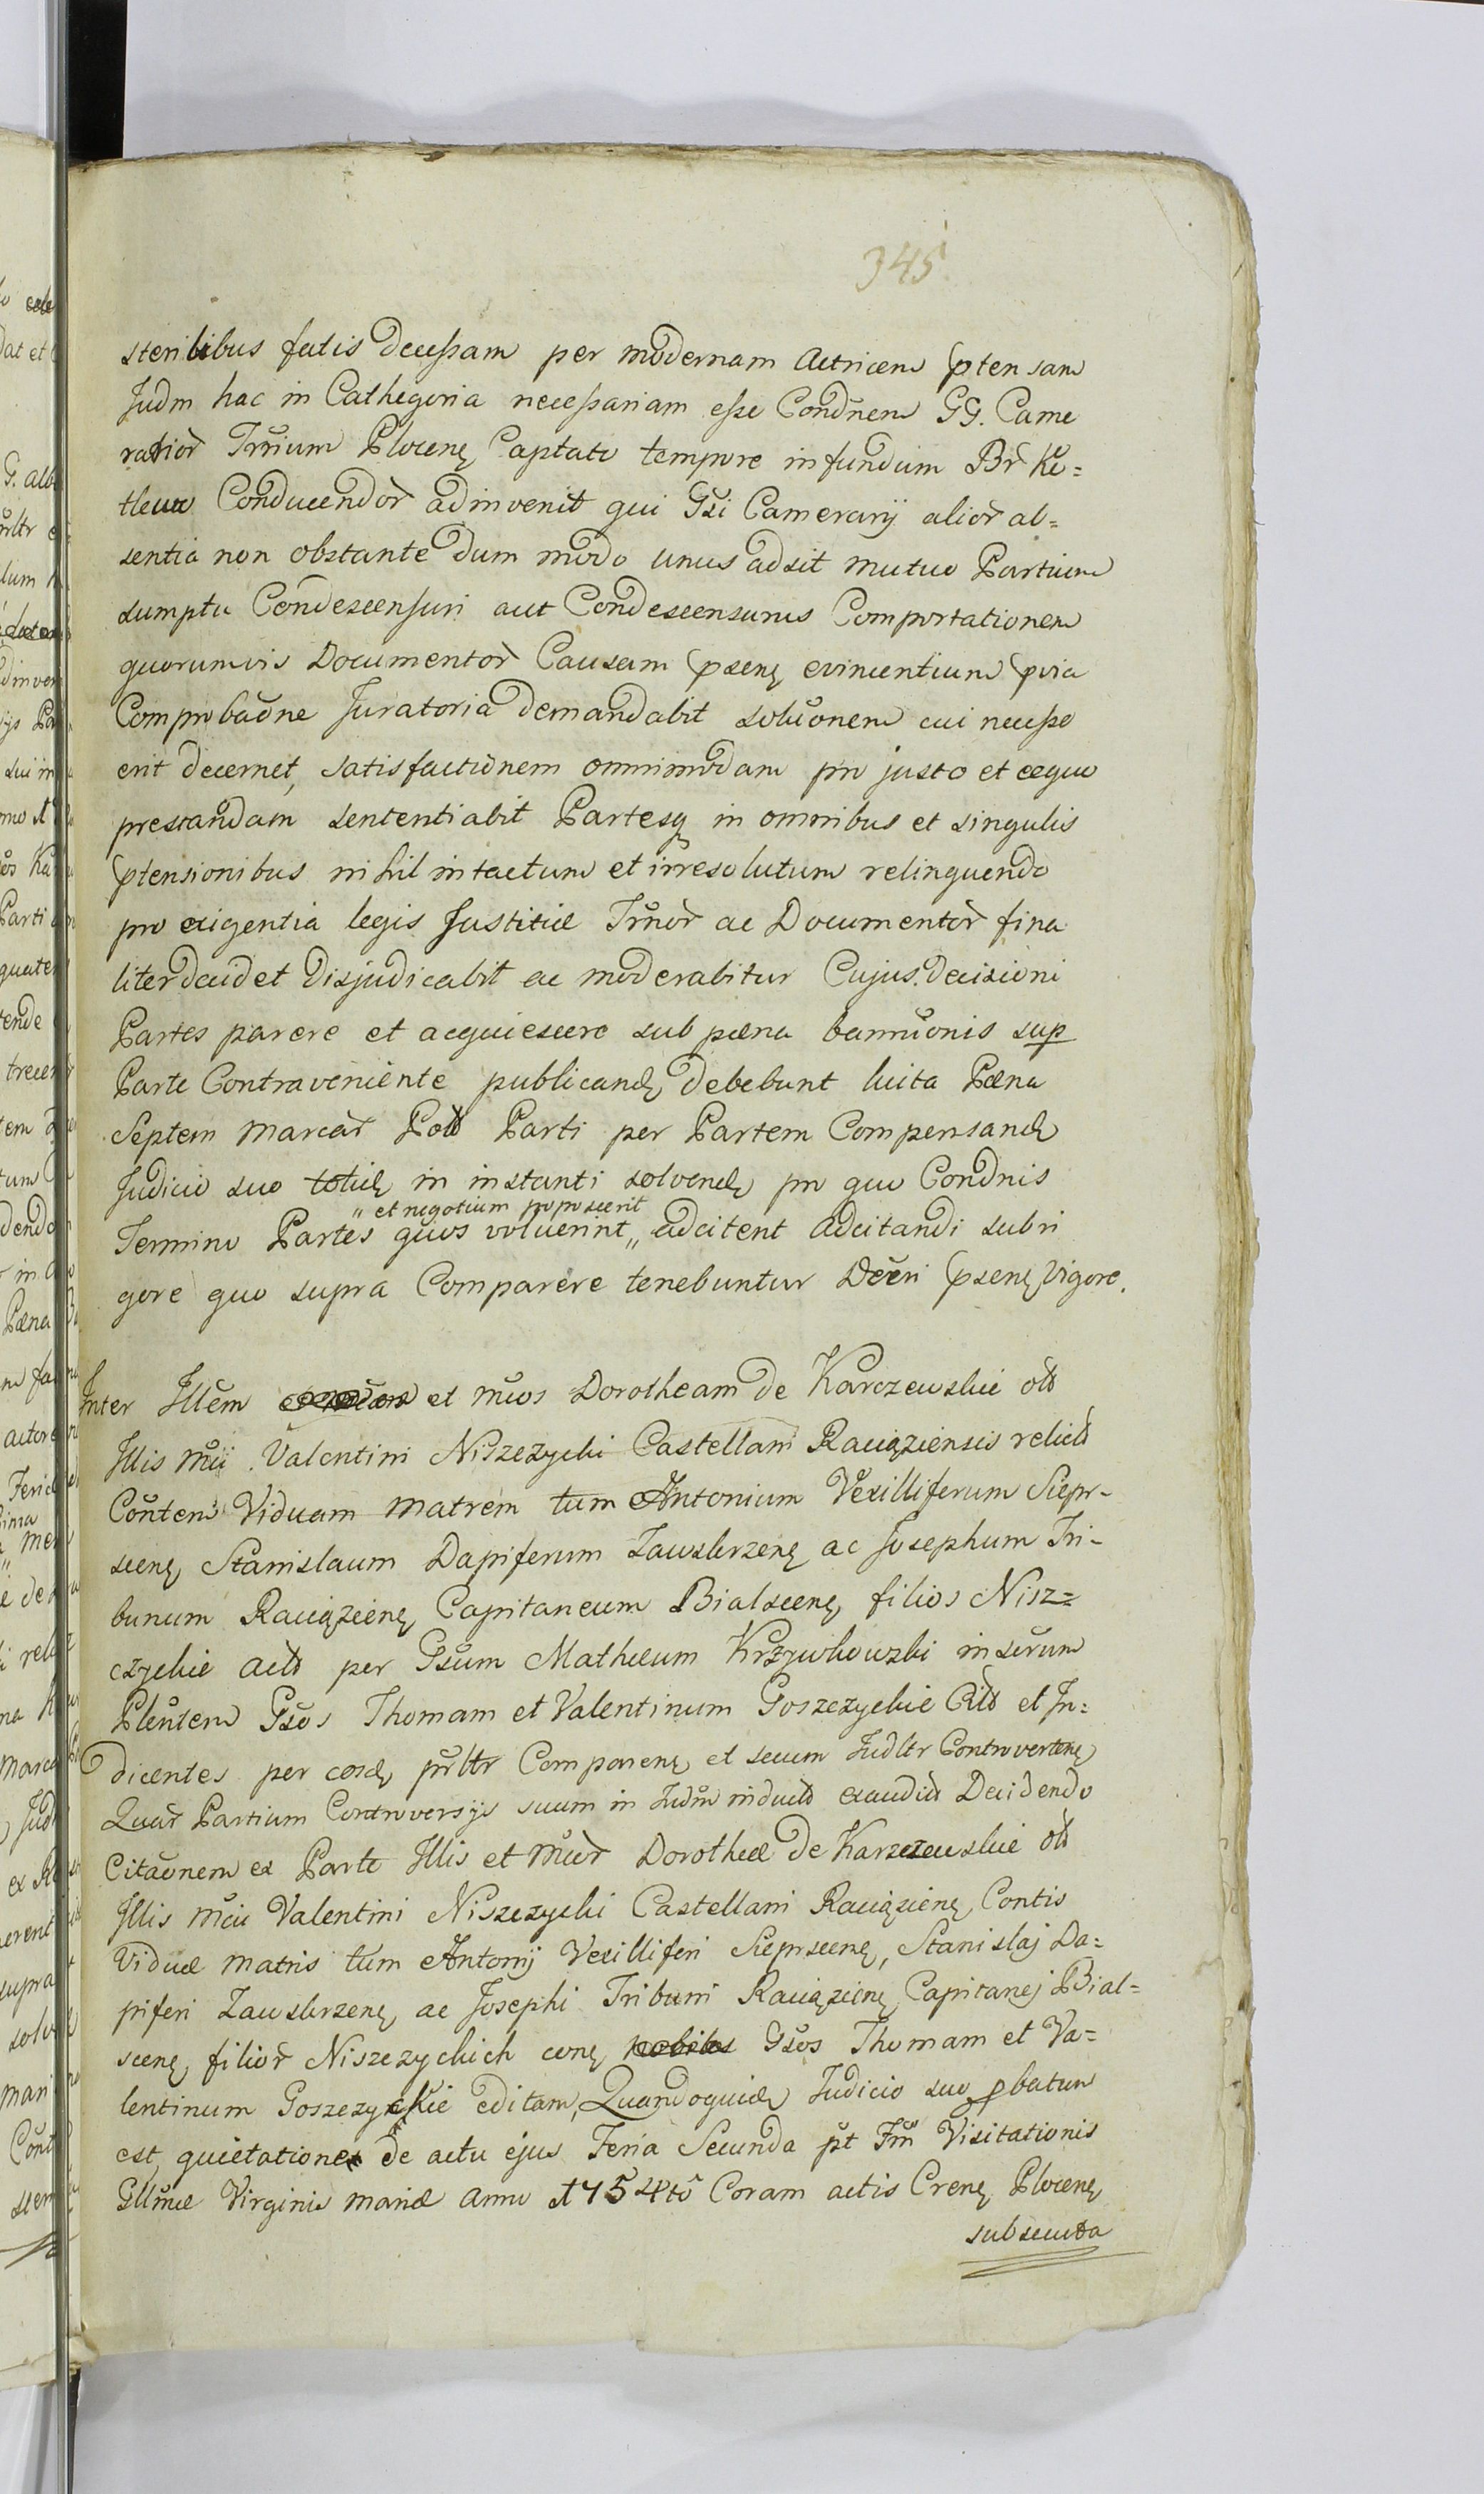 345
sterilibus fatis decessam per modernam Actricem ptensam
Judm hac in Cathegoria necessariam esse Condnem GG. Came
rarior Trrium Plocen Captato tempore in fundum Br Ko=
tlewo Conducendor adinvenit qui Gsi Camerarij alior ab=
sentia non obstante dum modo unus adsit mutuo Partium
sumptu Condescensuri aut Condescensurus Comportationem
quorumvis Documentor Causam psen evincentium pvia
Comprobaone Juratoria demandabit soluonem cui necesse
erit decernet, satisfactionem omnimodam pro justo et aequo
prestandam sententiabit Partesq in omnibus et singulis
ptensionibus nihil intactum et irresolutum relinquendo
pro exigentia legis Justitiae Jrnor ac Documentor fina
liter decidet Disjudicabit ac moderabitur Cujus decisioni
Partes parere et acquiescere sub paena bannuonis sup
Parte Contraveniente publicand debebunt luita Paena
Septem Marcar Pold Parti per Partem Compensand
Judicio suo totid in instanti solvend pro quo Condnis
„ et negotium poposcerit
Termino Partes quos voluerint „ adcitent adcitandi sub ri
gore quo supra Comparere tenebuntur Decri psen Vigore.
Inter Illem et Mcos Dorotheam de Karczewskie olb
Illis Mci Valentini Niszczycki Castellani Raciąziensis relictd
Contem Viduam Matrem tum Antonium Vexilliferum Sierp-
scen Stanislaum Dapiferum Zawskrzen ac Josephum Tri-
bunum Raciązien Capitaneum Bialscen filios Nisz=
czyckie Actd per Gsum Mathaeum Krzywkowski in serum
Plentem Gsos Thomam et Valentinum Goszczyckie Citd et In=
dicentes per eosd prltr Comparen et secum Judltr Controverten
Quar Partium Controversijs suum in Judm inductd exauditd Decidendo
Citaonem ex Parte Illis et Mcor Dorotheae de Karczewskie olb
Illis Mci Valentini Niszczycki Castellani Raciązien Contis
Viduae Matris tum Antonij Vexilliferi Sierpscen, Stanislaj Da=
piferi Zawskrzen ac Josephi Tribuni Raciązien Capitanej Bial=
scen filior Niszczyckich con nobiles Gsos Thomam et Va=
lentinum Goszczyckie editam, Quandoquid Judicio suo pbatum
est, quietationes de actu ejus Feria Secunda pt Fm Visitationis
Gllmae Virginis Mariae Anno 1754to Coram actis Cren Plocen
subsecuta